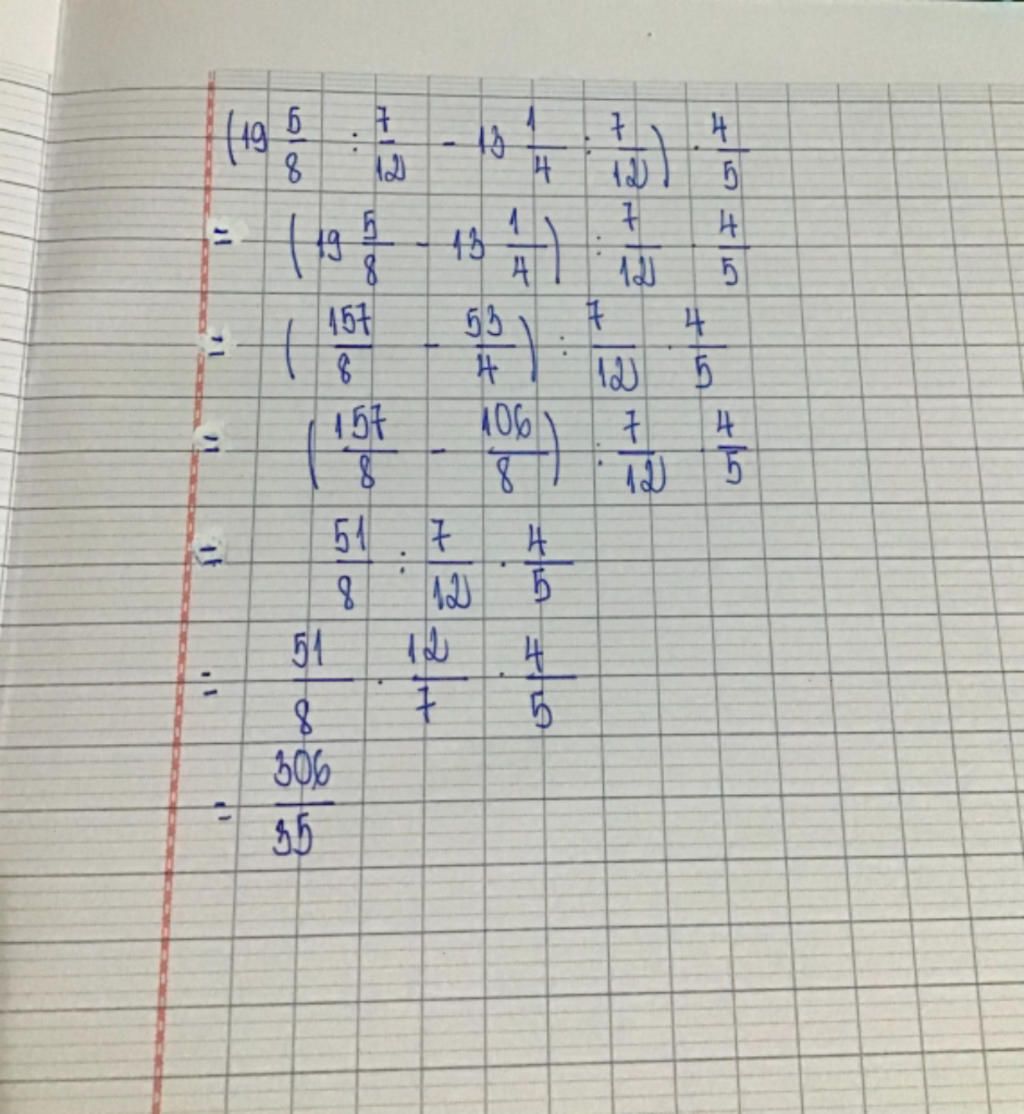 (19 5/8 : 7/12 - 13 1/4 : 7/12) · 4/5
= (19 5/8 - 13 1/4) : 7/12 · 4/5
= (157/8 - 53/4) : 7/12 · 4/5
= (157/8 - 106/8) : 7/12 · 4/5
= 51/8 : 7/12 · 4/5
= 51/8 · 12/7 · 4/5
= 306/35